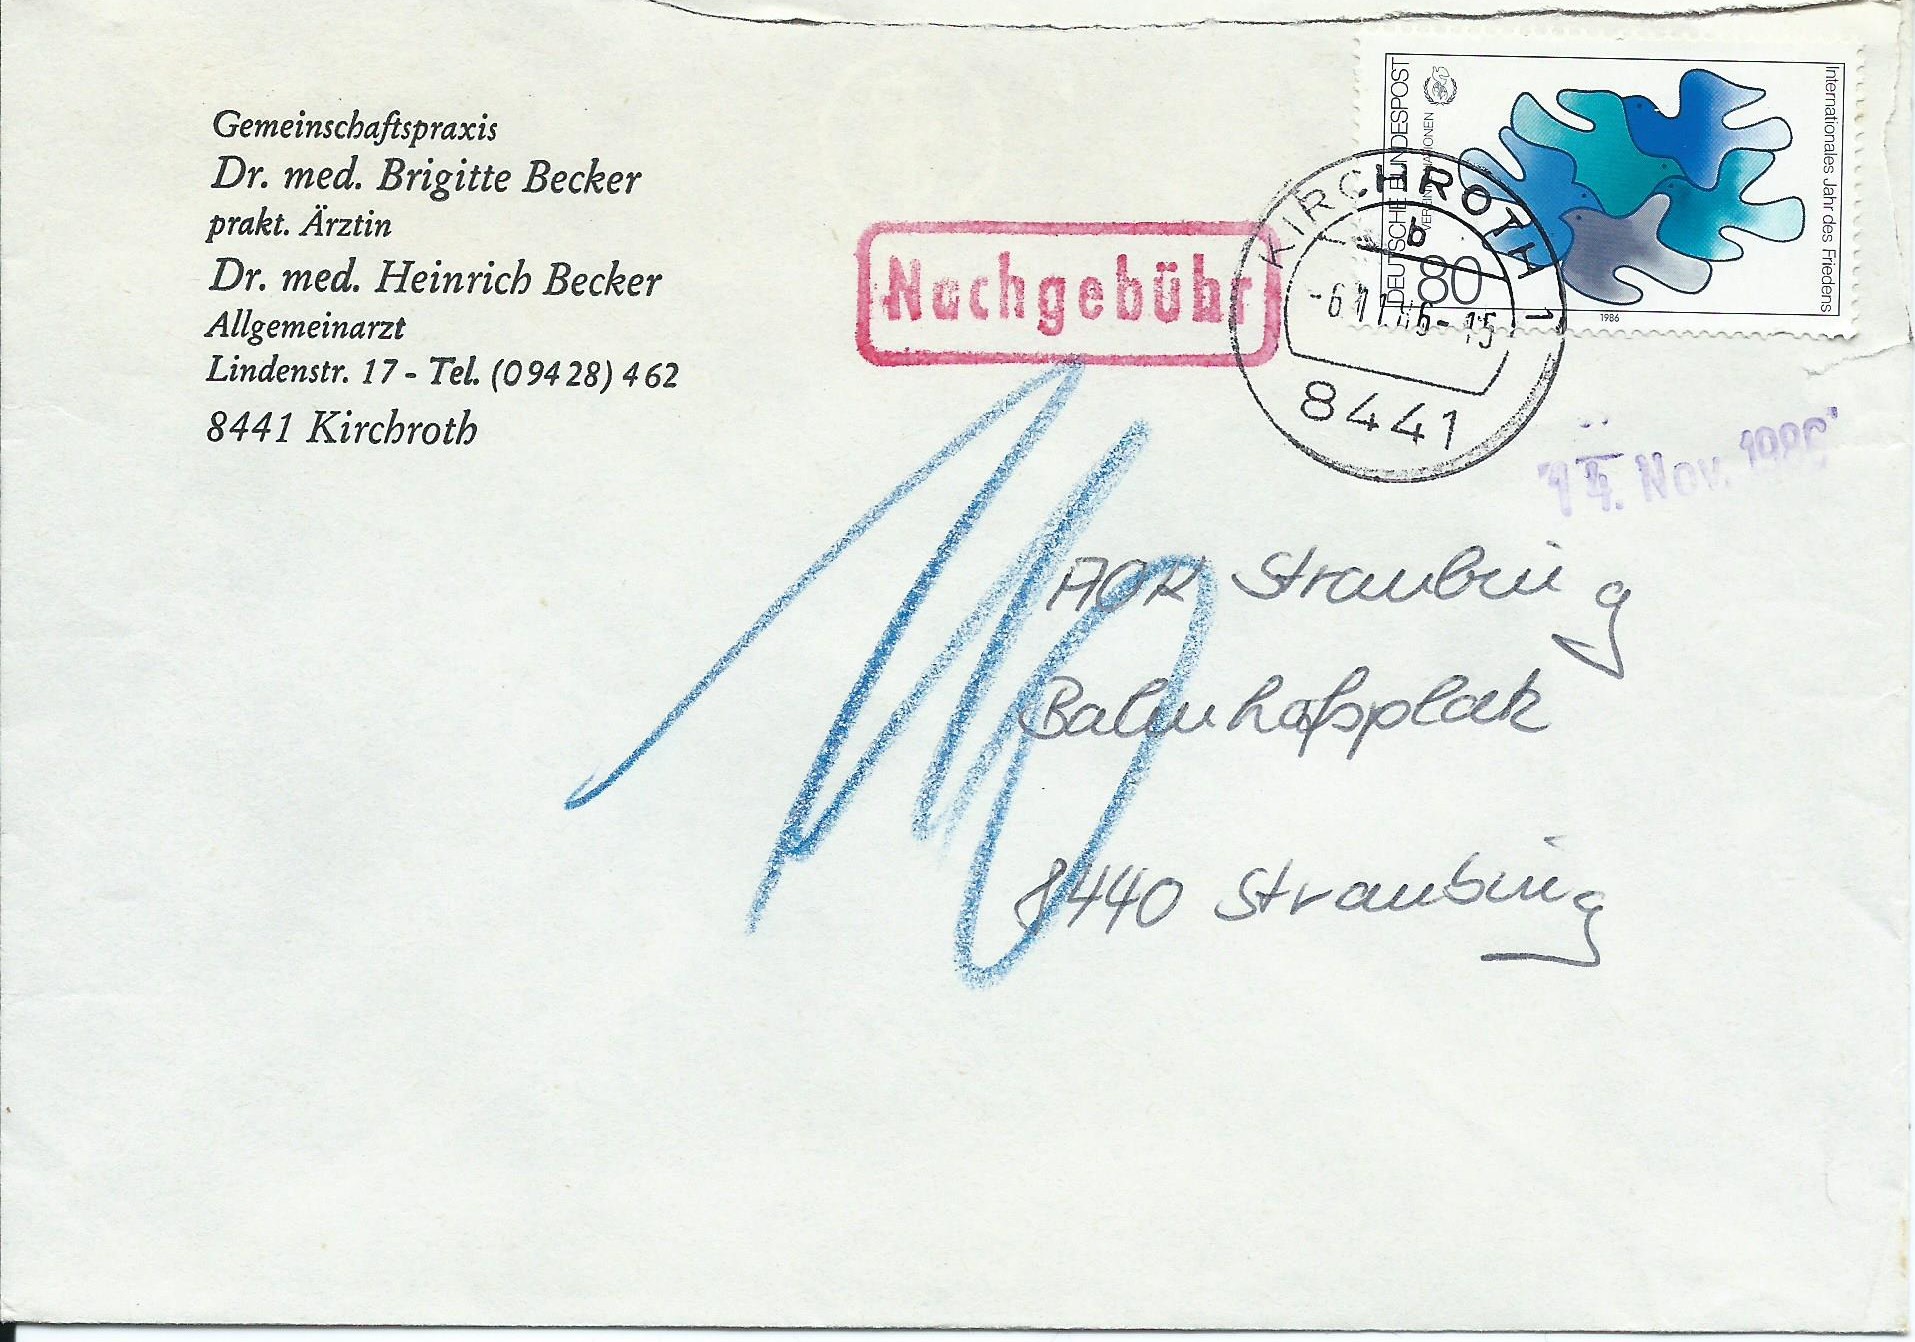 Gemeinschaftspraxis
Dr. med. Brigitte Becker
prakt. Ärztin
Dr. med. Heinrich Becker
Allgemeinarzt
Lindenstr. 17 - Tel. (09428) 462
8441 Kirchroth
Nachgebühr
DEUTSCHE BUNDESPOST
VEREINTE NATIONEN
80
Internationales Jahr des Friedens
1986
KIRCHROTH 1
b
-6.11.86-15
8441
Nov. 1986
AOK Straubing
Bahnhofsplatz
8440 Straubing